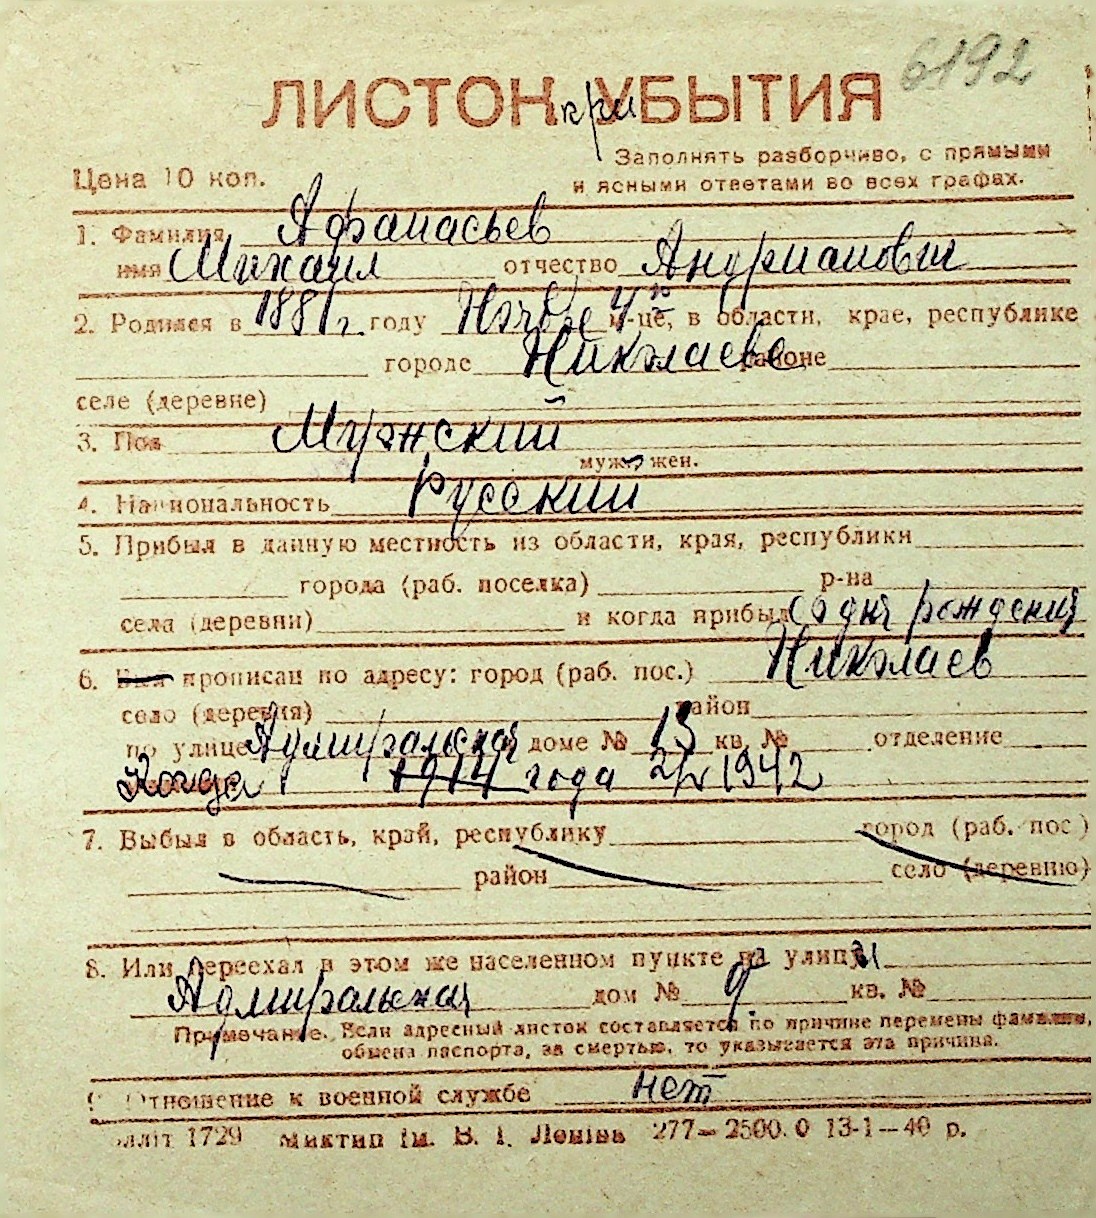 6192
ЛИСТОК при УБЫТИЯ
Заполнять разборчиво, с прямыми
Цена 10 коп.
и ясными ответами во всех графах.
1. Фамилия Афанасьев
имя Михаил отчество Андрианович
2. Родился в 1881 г. году Ноября 4 го м-це, в области, крае, республике
городе Николаеве районе
селе (деревне)
3. Пол Мужский
муж. жен.
4. Национальность Русский
5. Прибыл в данную местность из области, края, республики
города (раб. поселка) р-на
села (деревни) и когда прибыл со дня рождения
6. Был прописан по адресу: город (раб. пос.) Николаев
село (деревня) район
по улице Адмиральская доме № 13 кв. № отделение
Когда 1914 года 1942
7. Выбыл в область, край, республику город (раб. пос.)
район село (деревню)
8. Или переехал в этом же населенном пункте на улицу
Адмиральская дом № 9 кв. №
Примечание. Если адресный листок составляется по причине перемены фамилии,
обмена паспорта, за смертью, то указывается эта причина.
Отношение к военной службе нет
1729 ім. В. І. Леніна 277—2500.0 13-1—40 р.